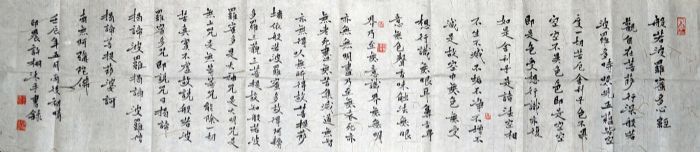 般若波羅蜜多心經
觀自在菩薩行深般若
波羅蜜多時照見五蘊皆空
度一切苦厄舍利子色不異
空空不異色色即是空空
即是色受想行識亦復
如是舍利子是諸法空相
不生不滅不垢不淨不增不
減是故空中無色無受
想行識無眼耳鼻舌身
意無色聲香味觸法無眼
界乃至無意識界無無明
亦無無明盡乃至無老死亦
無老死盡無苦集滅道無智
亦無得以無所得故菩提
依般若波羅蜜多故得阿耨
多羅三藐三菩提故知般若波
羅蜜多是大神咒是大明咒是
無上咒是無等等咒能除一切
苦真實不虛故說般若波
羅蜜多咒即說咒曰揭諦
揭諦波羅揭諦波羅僧
揭諦菩提薩婆訶
南無阿彌陀佛
壬辰年五月雨後初晴
許桐沐手書錄